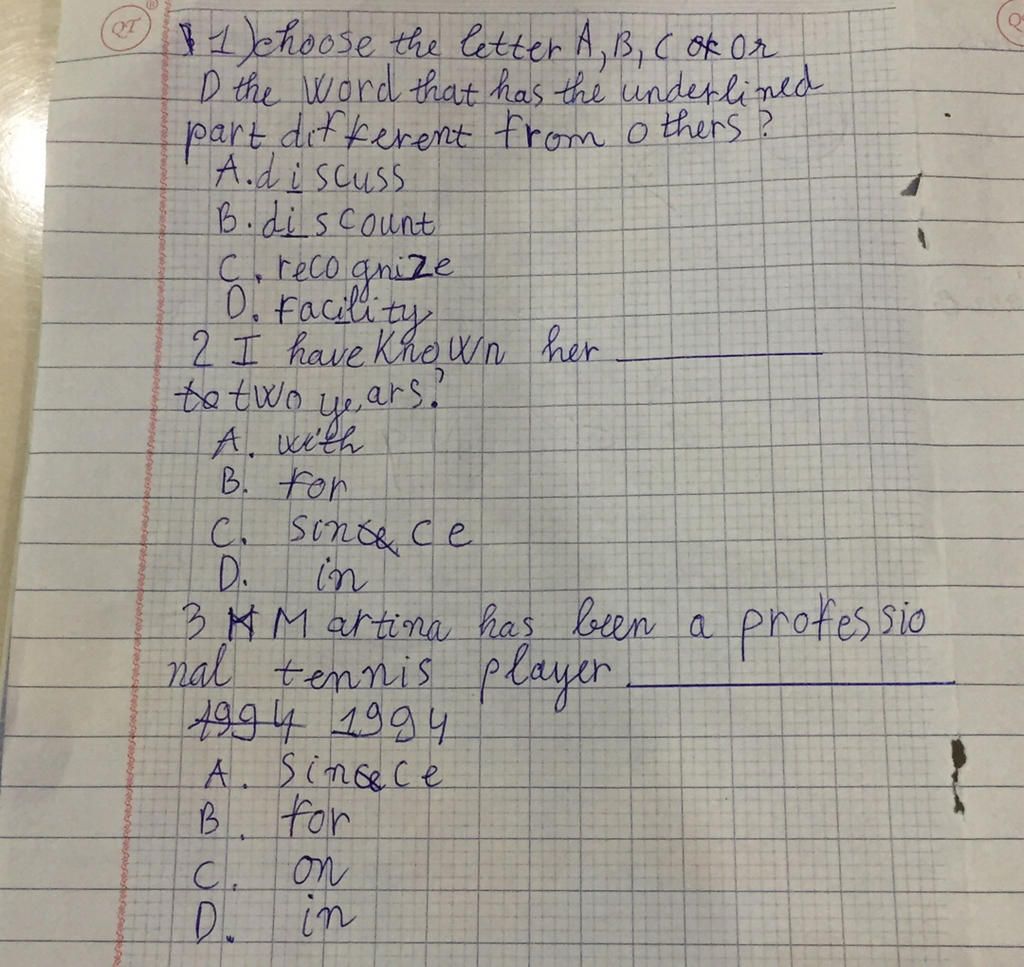 QT
1) choose the letter A, B, C or Or
D the word that has the underlined
part different from others?
A. discuss
B. discount
C. recognize
D. facility
2 I have known her ___________
to two years?
A. with
B. for
C. sinse ce
D. in
3 H Martina has been a professio
nal tennis player ___________
1994 1994
A. Sinse ce
B. for
C. on
D. in